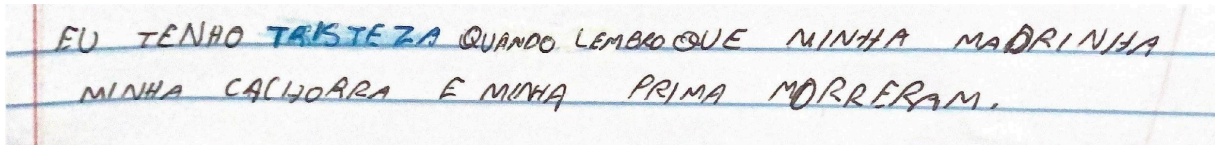 EU TENHO TRISTEZA QUANDO LEMBRO QUE MINHA MADRINHA
MINHA CACHORRA E MINHA PRIMA MORRERAM.